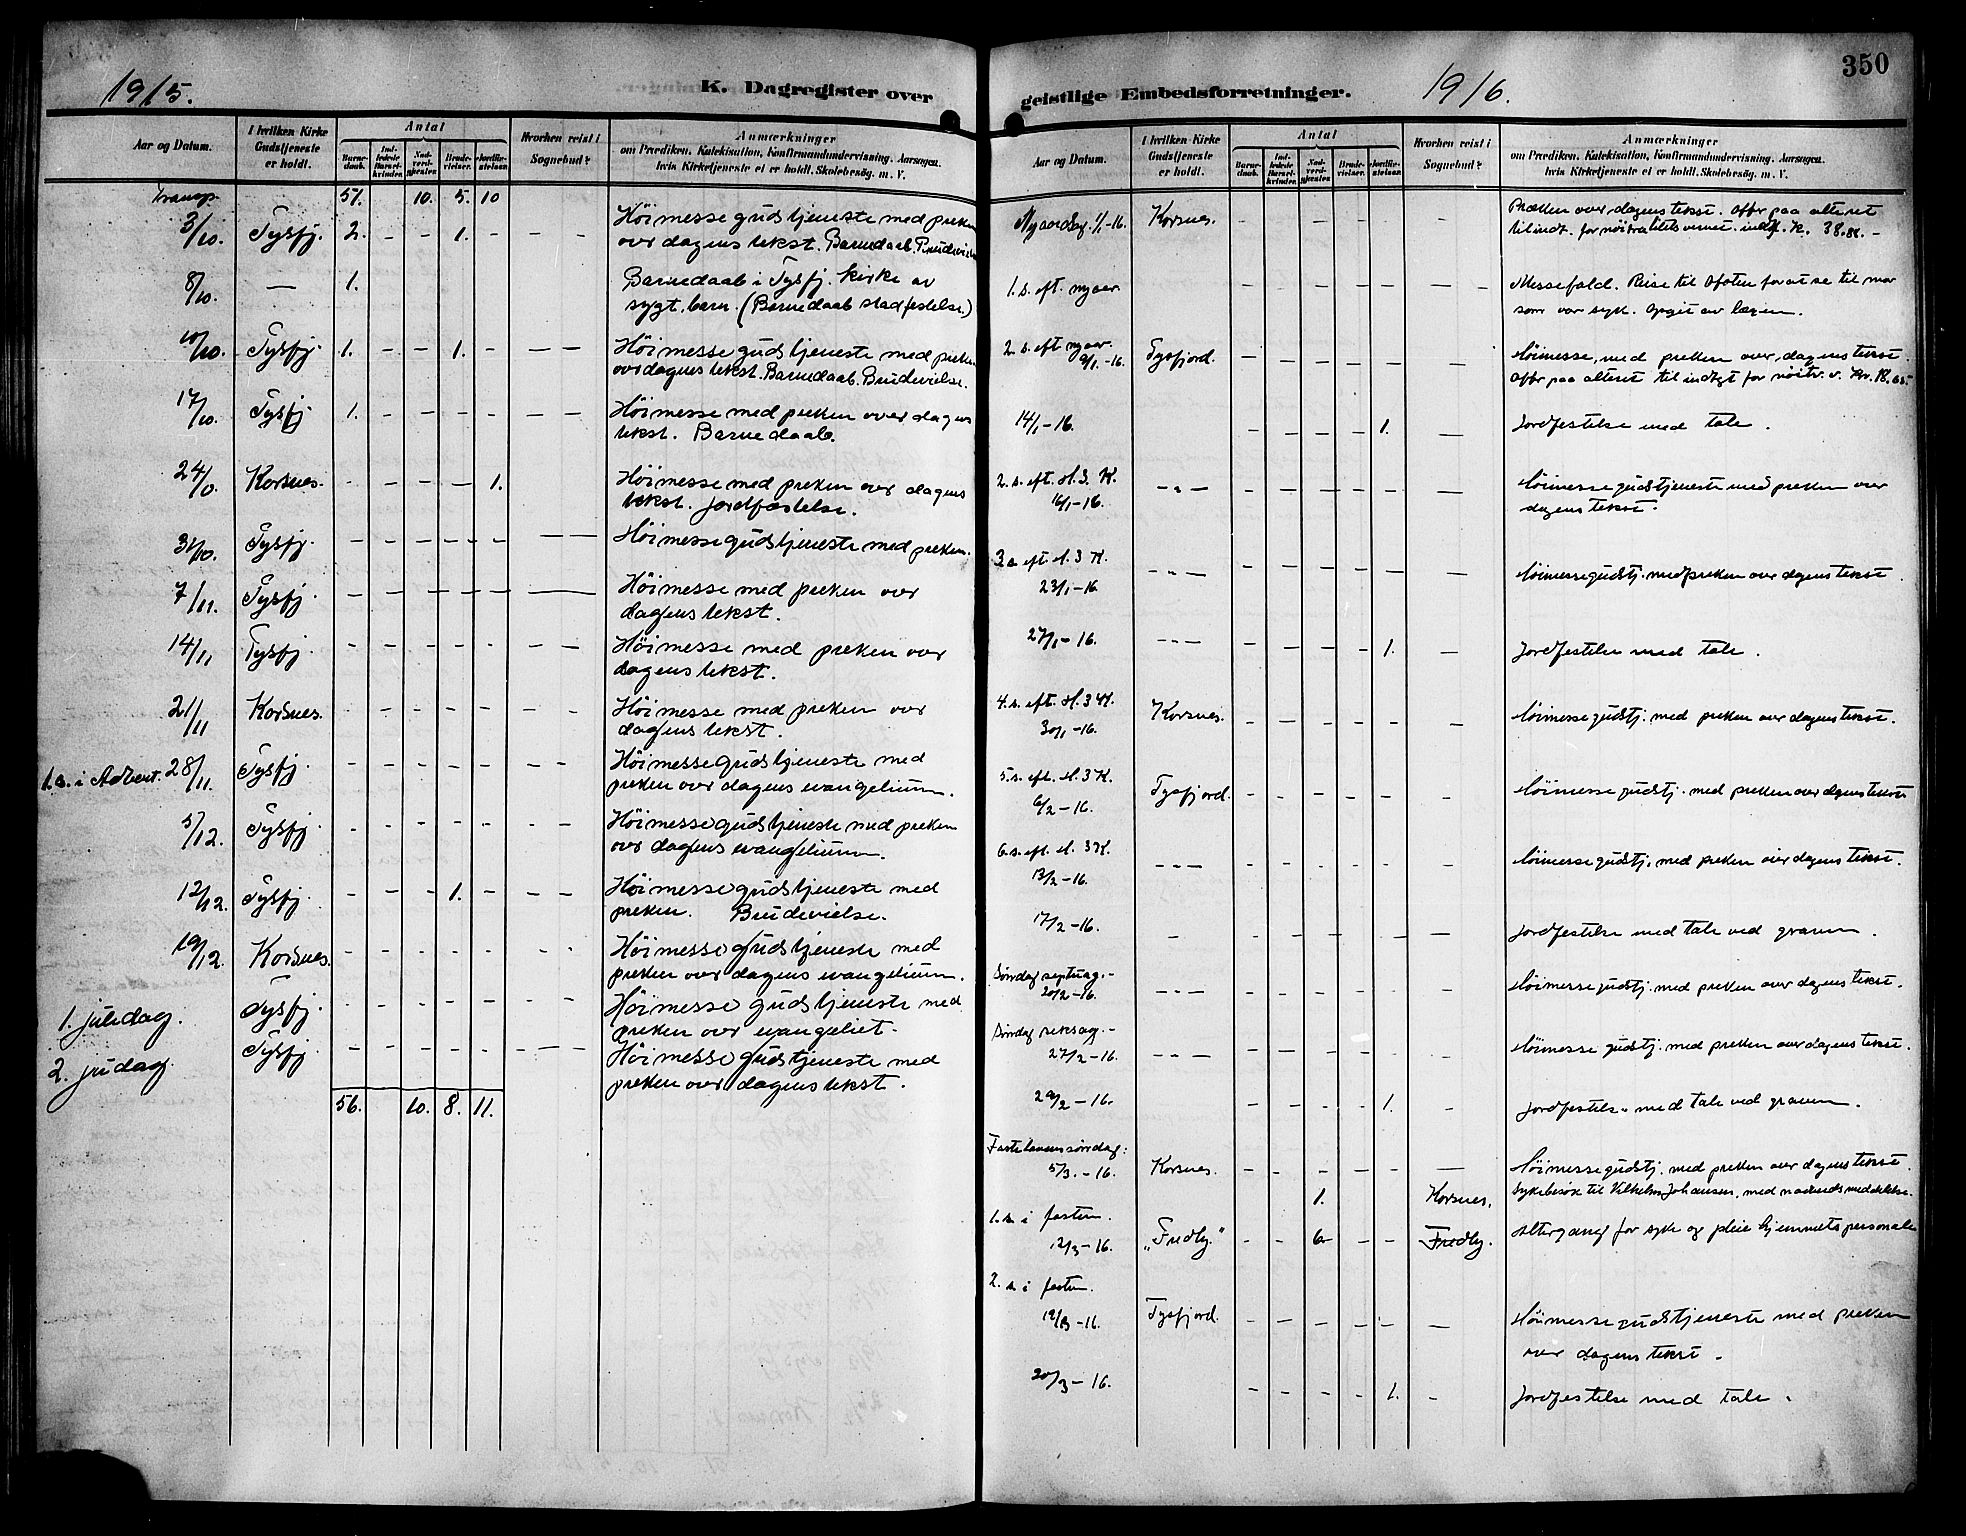 1915.
K. Dagregister over
Aar og Datum.
I hvilken Kirke
Gudstjeneste
er holdt.
Antal
Barne-
daab.
Ind-
ledede
Barsel-
kvinder.
Nad-
verd-
gjæster.
Brude-
vielser.
Jordfæ-
stelser.
Hvorhen reist i
Sognebud?
Anmærkninger
om Prædiken, Katekisation, Konfirmandundervisning. Aarsagen,
hvis Kirketjeneste ei er holdt. Skolebesøg. m. V.
Transp. 51. 10. 5. 10
3/10. Tysfj. 2. - - 1. - - - Höimesse gudstjeneste med preken
over dagens tekst. Barnedaab. Brudevielse
8/10. — 1. Barnedaab i Tysfj. kirke av
sygt. barn. (Barnedaab stadfestelse.)
10/10. Tysfj. 1. - - 1. - - - Höimesse gudstjeneste med preken
over dagens tekst. Barnedaab. Brudevielse.
17/10. Tysfj. 1. - - - - - - Höimesse med preken over dagens
tekst. Barnedaab.
24/10. Korsnes. - - - - 1. Höimesse med preken over dagens
tekst. Jordfæstelse.
31/10. Tysfj. - - - - - - - Höimessegudstjeneste med preken.
7/11. Tysfj. - - - - - - - Höimesse med preken over
dagens tekst.
14/11 Tysfj. - - - - - - - Höimesse med preken over
dagens tekst.
21/11 Korsnes. - - - - - - - Höimesse med preken over
dagens tekst.
1. s. i Advent. 28/11. Tysfj. - - - - - - - Höimessegudstjeneste med
preken over dagens evangelium.
5/12. Tysfj. - - - - - - - Höimessegudstjeneste med preken
over dagens evangelium.
12/12. Tysfj. - - - 1. - - - Höimessegudstjeneste med
preken. Brudevielse.
19/12. Korsnes. - - - - - - - Höimesse gudstjeneste med
preken over dagens evangelium.
1. juledag. Tysfj. - - - - - - - Höimesse gudstjeneste med
preken over evangeliet.
2. juledag. Tysfj. - - - - - - - Höimesse gudstjeneste med
preken over dagens tekst.
56. 10. 8. 11.
350
geistlige Embedsforretninger.
1916.
Aar og Datum.
I hvilken Kirke
Gudstjeneste
er holdt.
Antal
Barne-
daab.
Ind-
ledede
Barsel-
kvinder.
Nad-
verd-
gjæster.
Brude-
vielser.
Jordfæ-
stelser.
Hvorhen reist i
Sognebud?
Anmærkninger
om Prædiken, Katekisation, Konfirmandundervisning. Aarsagen,
hvis Kirketjeneste ei er holdt. Skolebesøg. m. V.
Nyaarsdag 1/1-16. Korsnes. - - - - - - Præken over dagens tekst. Offer paa alteret
til indt. for nöitralitetsvernet. indk. K. 38.88. -
1. s. eft. nyaar - - - - - - - Messefald. Reise til Ofoten for at se til mor
som var syk. Opgit av lægen.
2. s. eft nyaar.
9/1.-16. Tysfjord. - - - - - - Höimesse, med preken over dagens tekst.
Offer paa alteret til indtgt for nöitr. v. Kr. 18.65.
14/1-16. - - - - 1. - Jordfestelse med tale.
2. s. eft. H. 3. K.
16/1-16. - " - - - - - - - Höimesse gudstjeneste med preken over
dagens tekst.
3. s. eft. H. 3 K.
23/1-16 - " - - - - - - - Höimessegudstj. med preken over dagens tekst.
27/1-16. - " - - - - - 1. - Jordfestelse med tale.
4. s. eft. H. 3 K.
30/1-16. Korsnes. - - - - - - Höimessegudstj. med preken over dagens tekst.
5. s. eft. H. 3 K.
6/2-16. Tysfjord. - - - - - - Höimesse gudstj. med preken over dagens tekst
6. s. eft. H. 3 K.
13/2-16. - " - - - - - - - Höimesse gudstj. med preken over dagens tekst.
17/2-16. - - - - - - Jordfestelse med tale ved graven.
Söndag septuag.-
20/2-16. - " - - - - - - - Höimesse gudstj. med preken over dagens tekst.
Söndag seksag.-
27/2-16. - " - - - - - - - Höimesse gudstj. med preken over dagens tekst.
29/2-16. - - - - 1. - Jordfestelse med tale ved graven.
Fastelavenssöndag:
5/3.-16. Korsnes. - - - - - - Höimessegudstj. med preken over dagens tekst.
1. Korsnes. Sykebesök til Vilhelm Johansen, med nadverds meddelelse.
1. s. i fasten.
12/3-16. "Fredly." - - 6 - - Fredly. Altergang for syke og pleiehjemmets personale
2. s. i fasten.
19/3-16. Tysfjord. - - - - - - Höimesse gudstjeneste med preken
over dagens tekst.
20/3-16. - - - - 1. - Jordfestelse med tale.